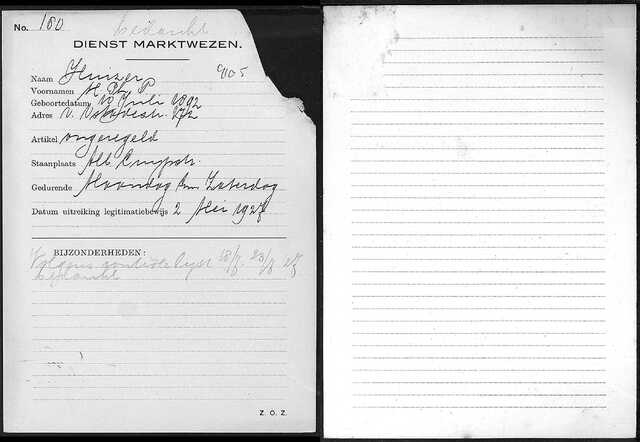 No. 180
bedankt
DIENST MARKTWEZEN.
Naam Huizer 905
Voornamen H. Ph. P
Geboortedatum 10 Juli 1892
Adres v. Ostadestr. 272
Artikel ongeregeld
Staanplaats Alb Cuypstr.
Gedurende Maandag t/m Zaterdag
Datum uitreiking legitimatiebewijs 2 Mei 1927
BIJZONDERHEDEN:
Volgens controle lijst 18/7. 23/7 27
bedankt
Z. O. Z.